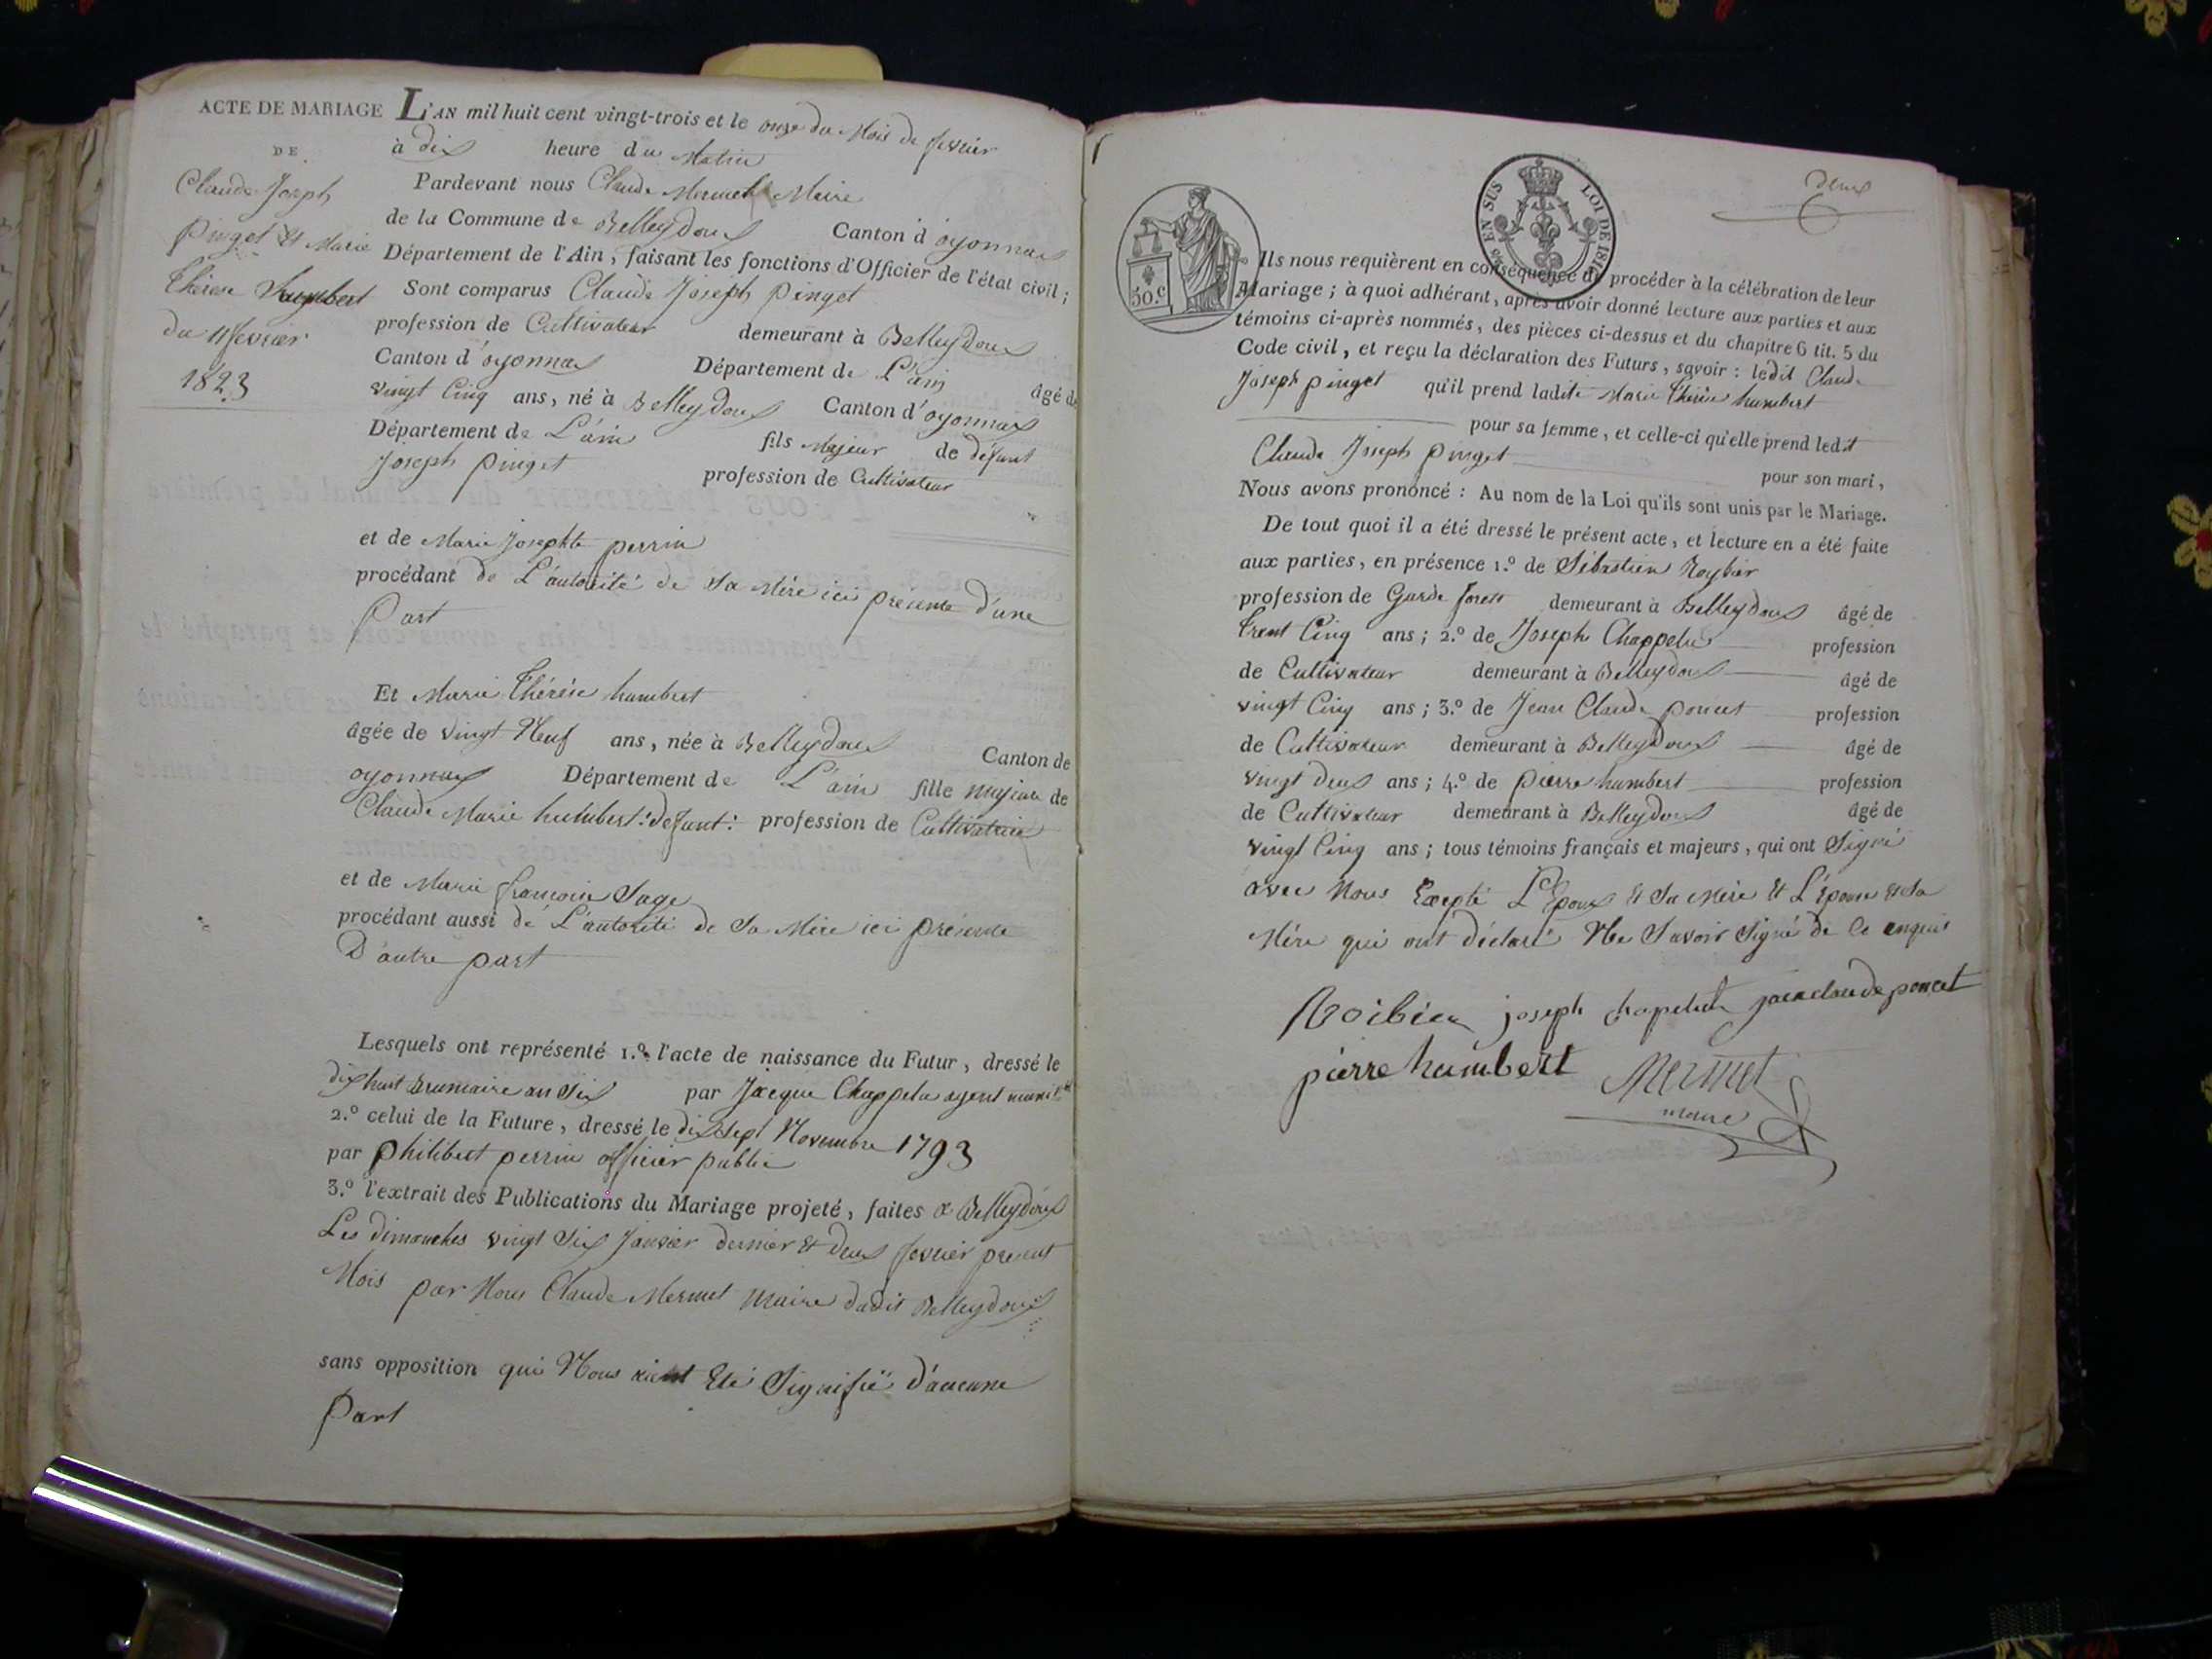 ACTE DE MARIAGE
DE
Claude Joseph
pinget Et Marie
Thérèse humbert
du 11 fevrier
1823
L'AN mil huit cent vingt-trois et le onze du Mois de fevrier
à dix heure du Matin
Pardevant nous Claude Mermet Maire
de la Commune de Belleydoux Canton d'oyonnax
Département de l'Ain, faisant les fonctions d'Officier de l'état civil;
Sont comparus Claude Joseph pinget
profession de Cultivateur demeurant à Belleydoux
Canton d'oyonnax Département de L'ain âgé de
vingt Cinq ans, né à Belleydoux Canton d'oyonnax
Département de L'ain fils Majeur de defunt
Joseph pinget profession de Cultivateur
et de Marie Josephte perrin
procédant de L'autorité de Sa Mère ici présente d'une
Part
Et Marie Thérèse humbert
âgée de vingt Neuf ans, née à Belleydoux Canton de
oyonnax Département de L'ain fille majeure de
Claude Marie humbert :defunt: profession de Cultivatrice
et de Marie françoise Sage
procédant aussi de L'autorité de Sa Mère ici présente
D'autre part
Lesquels ont représenté 1.º l'acte de naissance du Futur, dressé le
dix huit Brumaire an Six par Jacque Chappelu agent
2.º celui de la Future, dressé le dix Sept Novembre 1793
par philibert perrin officier public
3.º l'extrait des Publications du Mariage projeté, faites a Belleydoux
Les dimanches vingt Six Janvier dernier Et Deux fevrier present
Mois par Nous Claude Mermet Maire dudit Belleydoux
sans opposition qui Nous Eté Signifié d'aucune
Part
deux
EN SUS LOI DE
50.c
Ils nous requièrent en conséquence de procéder à la célébration de leur
Mariage; à quoi adhérant, après avoir donné lecture aux parties et aux
témoins ci-après nommés, des pièces ci-dessus et du chapitre 6 tit. 5 du
Code civil, et reçu la déclaration des Futurs, savoir: ledit Claude
Joseph pinget qu'il prend ladite Marie Thérèse humbert
pour sa femme, et celle-ci qu'elle prend ledit
Claude Joseph pinget pour son mari,
Nous avons prononcé: Au nom de la Loi qu'ils sont unis par le Mariage.
De tout quoi il a été dressé le présent acte, et lecture en a été faite
aux parties, en présence 1.º de Sébastien Roybier
profession de Garde forest demeurant à Belleydoux âgé de
trent Cinq ans; 2.º de Joseph Chappelu profession
de Cultivateur demeurant à Belleydoux âgé de
vingt Cinq ans; 3.º de Jean Claude poncet profession
de Cultivateur demeurant à Belleydoux âgé de
vingt deux ans; 4.º de pierre humbert profession
de Cultivateur demeurant à Belleydoux âgé de
vingt Cinq ans; tous témoins français et majeurs, qui ont Signé
avec Nous Excepté L'Epoux Et Sa Mère Et L'Epouse et Sa
Mère qui ont déclaré Ne Savoir Signé de Ce enquis
Roibier joseph jean claude poncet
pierre humbert Mermet
maire